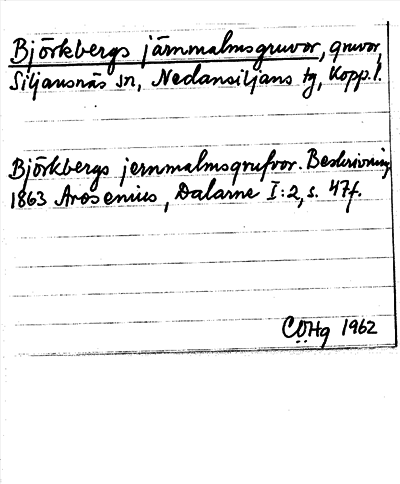 Björkbergs järnmalmsgruvor, gruvor,
Siljansnäs sn, Nedansiljans tg, Kopp. l.
Björkbergs jernmalmsgrufvor. Beskrivning
1863 Arosenius, Dalarne I:2, s. 47f.
CÖHg 1962